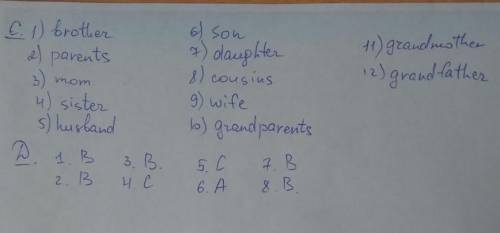 C. 1) brother
2) parents
3) mom
4) sister
5) husband
6) son
7) daughter
8) cousins
9) wife
10) grandparents
11) grandmother
12) grandfather
D. 1. B 3. B. 5. C 7. B
2. B 4. C 6. A 8. B.